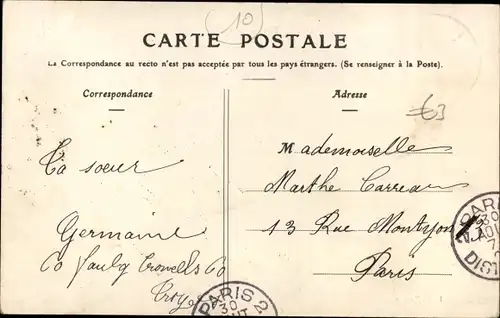 10
CARTE POSTALE
La Correspondance au recto n'est pas acceptée par tous les pays étrangers. (Se renseigner à la Poste).
Correspondance
Adresse
€3
Ta soeur
Germaine
Mademoiselle
Marthe Carreau
13 Rue Montyon
Paris
PARIS 2
30
PAR
30
DIST